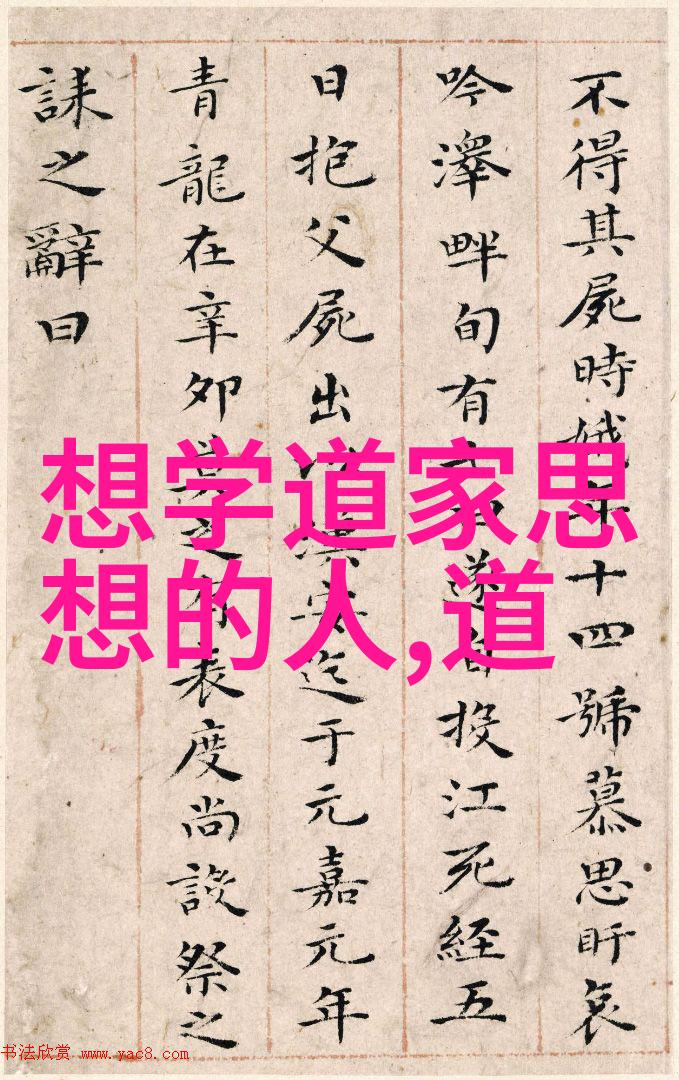 不得其屍時娥年十四號慕思盱哀
吟澤畔旬有七日遂自投江死經五
日抱父屍出以漢安迄于元嘉元年
青龍在辛卯莫之有表度尚設祭之
誄之辭曰
想学道家思
想的人,道
书法欣赏 www.yac8.com